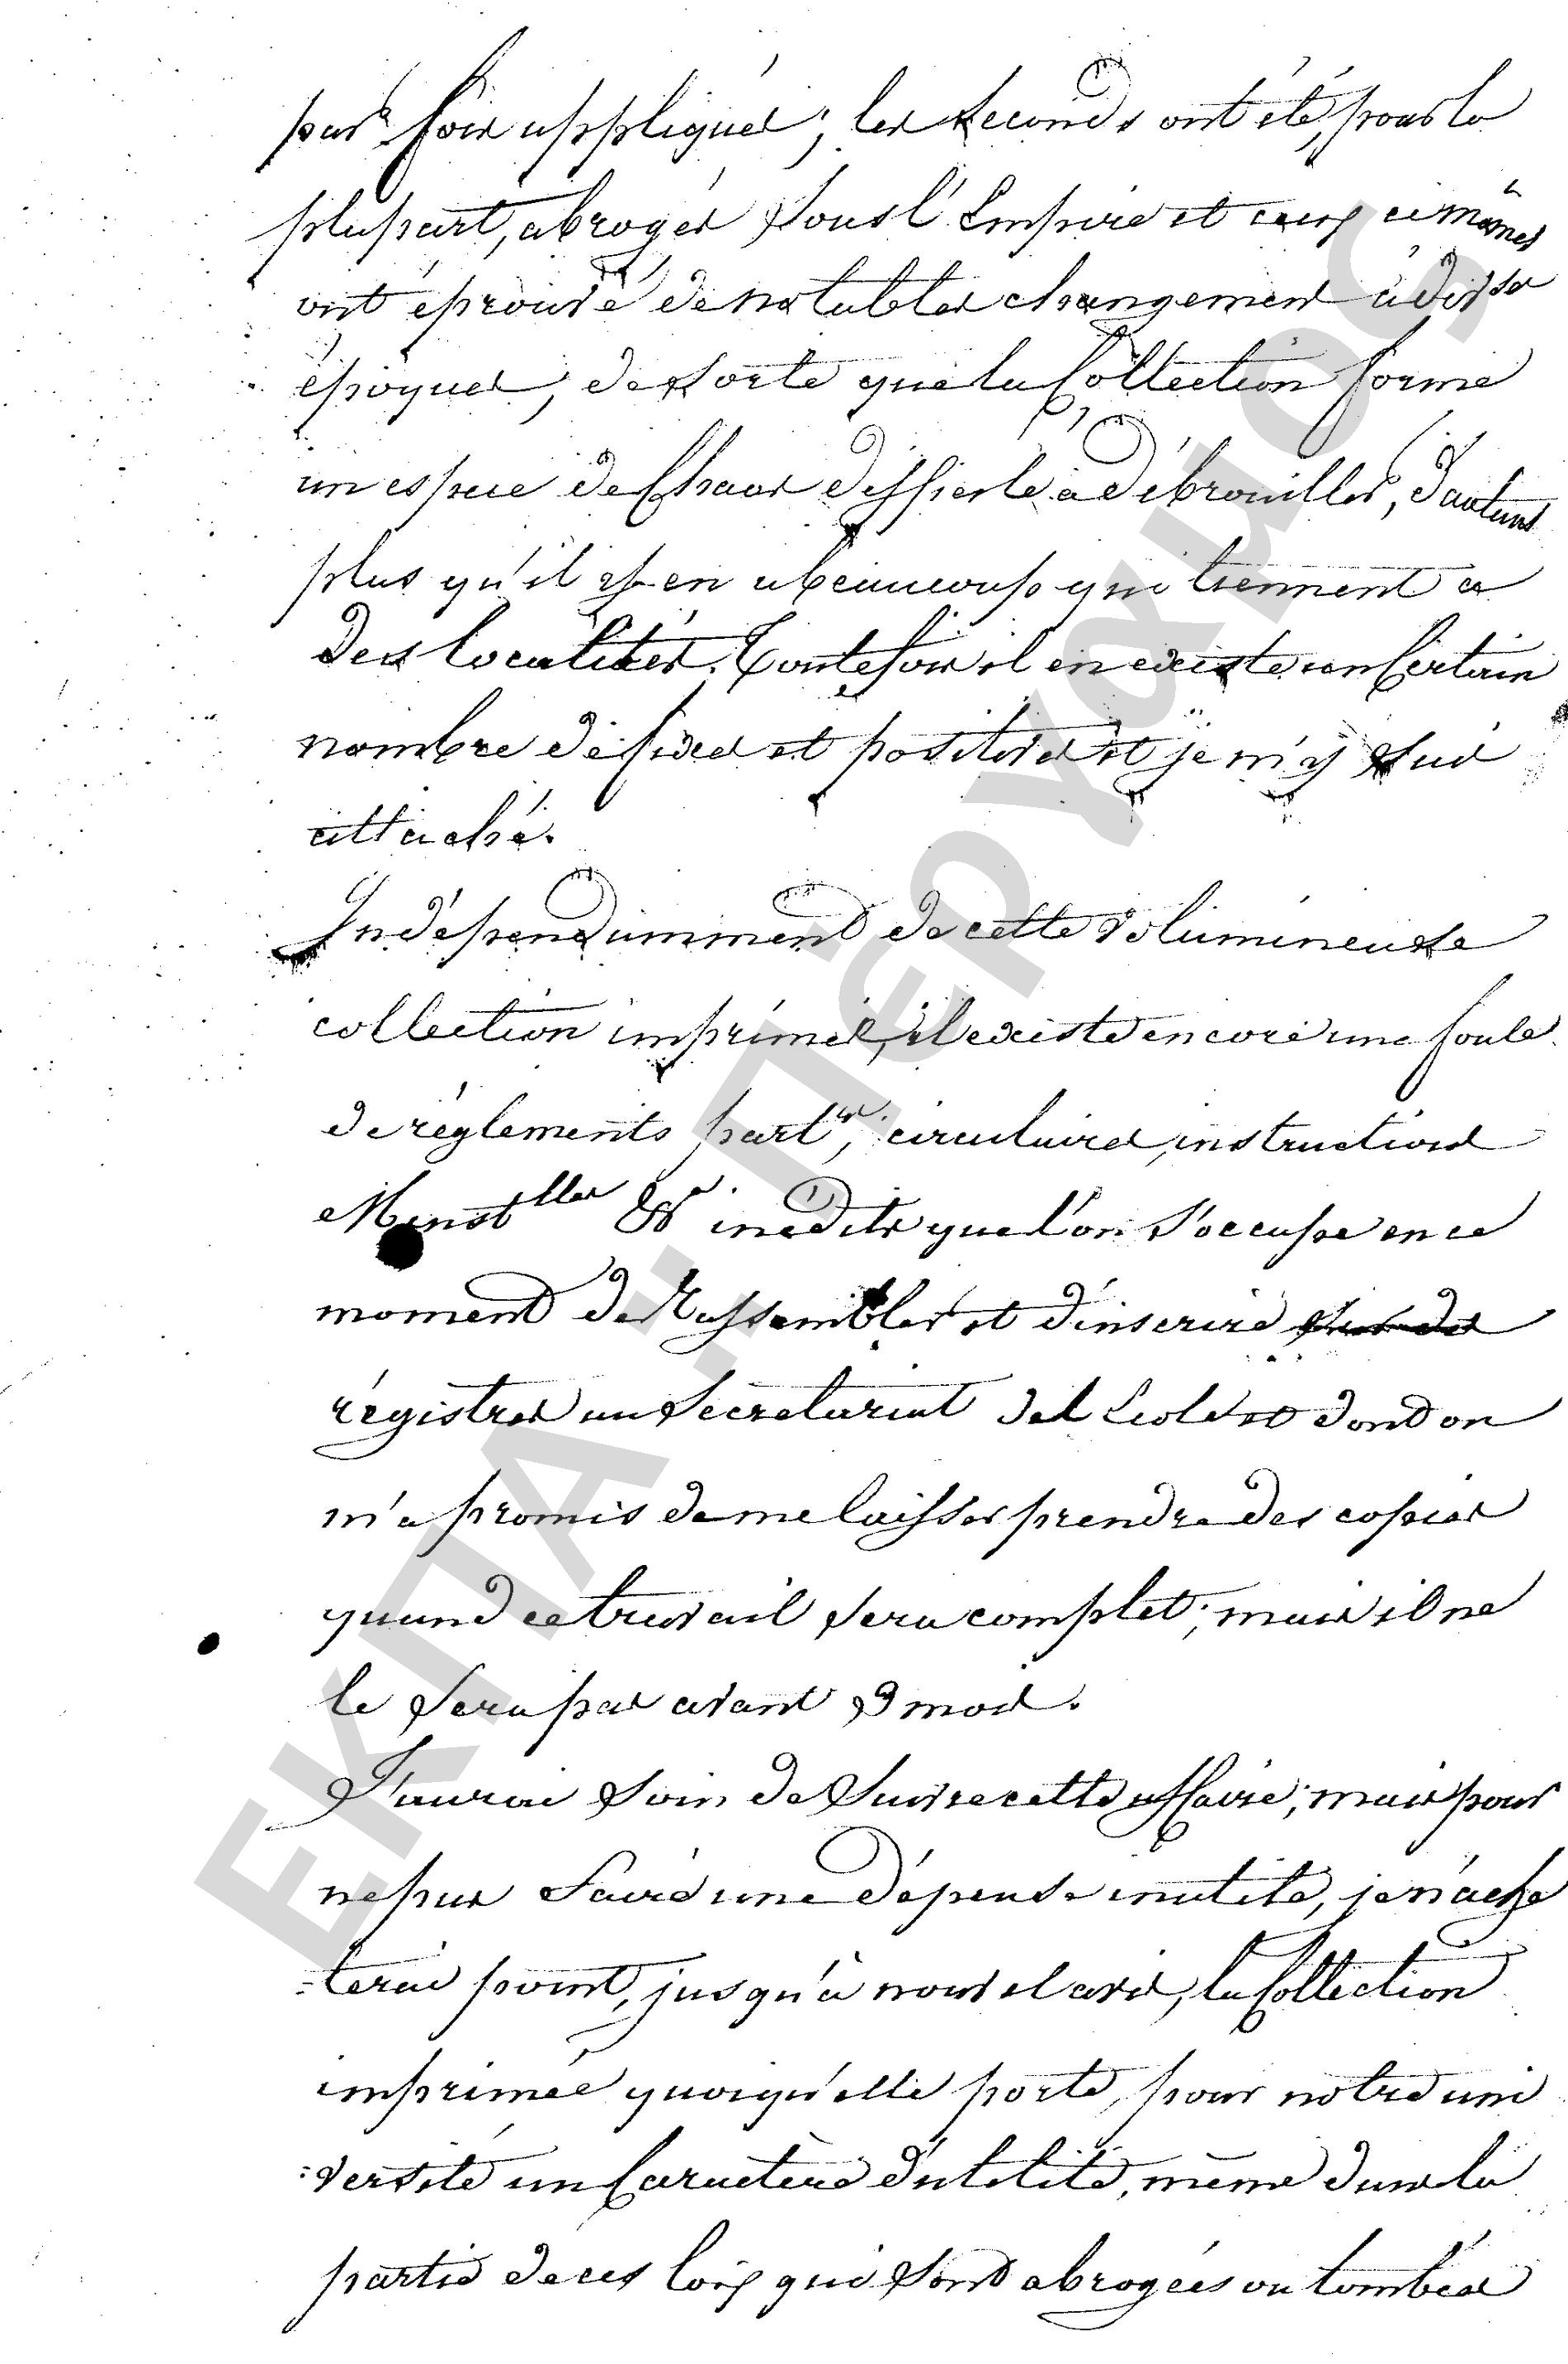 par fois appliqués; les seconds ont été, pour la
plupart, abrogés sous l'Empire et ceux ci mêmes
ont éprouvé de notables changemens à divses
époques, de sorte que la Collection forme
un espece de Chaos difficile à débrouiller, d'autant
plus qu'il y en a beaucoup qui tiennent a
des localités. Toutefois il en existe un Certain
nombre de fixes et positives et je m'y suis
attaché.
Indépendamment de cette volumineuse
collection imprimée, il existe encore une foule
de règlements partrs, circulaires, instructions
Minstlles &a. inédits que l'on s'occupe en ce
moment de rassembler et d'inscrire sur des
régistres au Sécrétariat de l'Ecole et dont on
m'a promis de me laisser prendre des copies
quand ce travail sera complet; mais il ne
le sera pas avant 3 mois.
J'aurai soin de Suivre cette affaire; mais pour
ne pas faire une dépense inutile, je n'ache
=terai point, jusqu'à nouvel avis, la Collection
imprimée quoiqu'elle porte, pour notre uni
:versité un Caractère d'utilité, même dans la
partie de ces loix qui sont abrogées ou tombées
ΕΚΠΑ - Πέργαμος